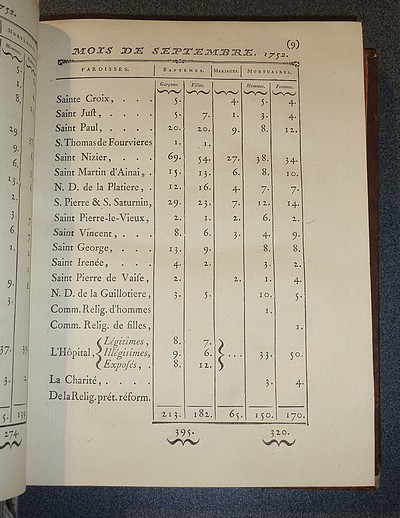 5.
1.
8.
29.
9.
6.
13.
2.
3.
6.
1.
9.
3.
37.
3.
274.
(9)
MOIS DE SEPTEMBRE. 1752.
PAROISSES. BAPTEMES. MARIAGES. MORTUAIRES.
Garçons. Filles. Hommes. Femmes.
Sainte Croix, . . . 5. 4. 5. 4.
Saint Just, . . . . 5. 7. 1. 3. 4.
Saint Paul, . . . . 20. 20. 9. 8. 12.
S. Thomas de Fourvieres 1. 1.
Saint Nizier, . . . 69. 54. 27. 38. 34.
Saint Martin d'Ainai, . 15. 13. 6. 8. 10.
N. D. de la Platiere, . 12. 16. 4. 7. 7.
S. Pierre & S. Saturnin, 29. 23. 7. 12. 14.
Saint Pierre-le-Vieux, 2. 1. 2. 6. 2.
Saint Vincent, . . . 8. 6. 3. 4. 9.
Saint George, . . . 13. 9. 8. 8.
Saint Irenée, . . . 4. 2. 3. 2.
Saint Pierre de Vaise, 2. 2. 1. 4.
N. D. de la Guillotiere, 3. 5. 10. 5.
Comm. Relig. d'hommes 1.
Comm. Relig. de filles, 1.
Légitimes, 8. 7.
L'Hôpital, Illégitimes, 9. 6. . . . . 33. 50.
Exposés, . 8. 12.
La Charité, . . . . 3. 4.
De la Relig. prét. réform.
213. 182. 65. 150. 170.
395. 320.